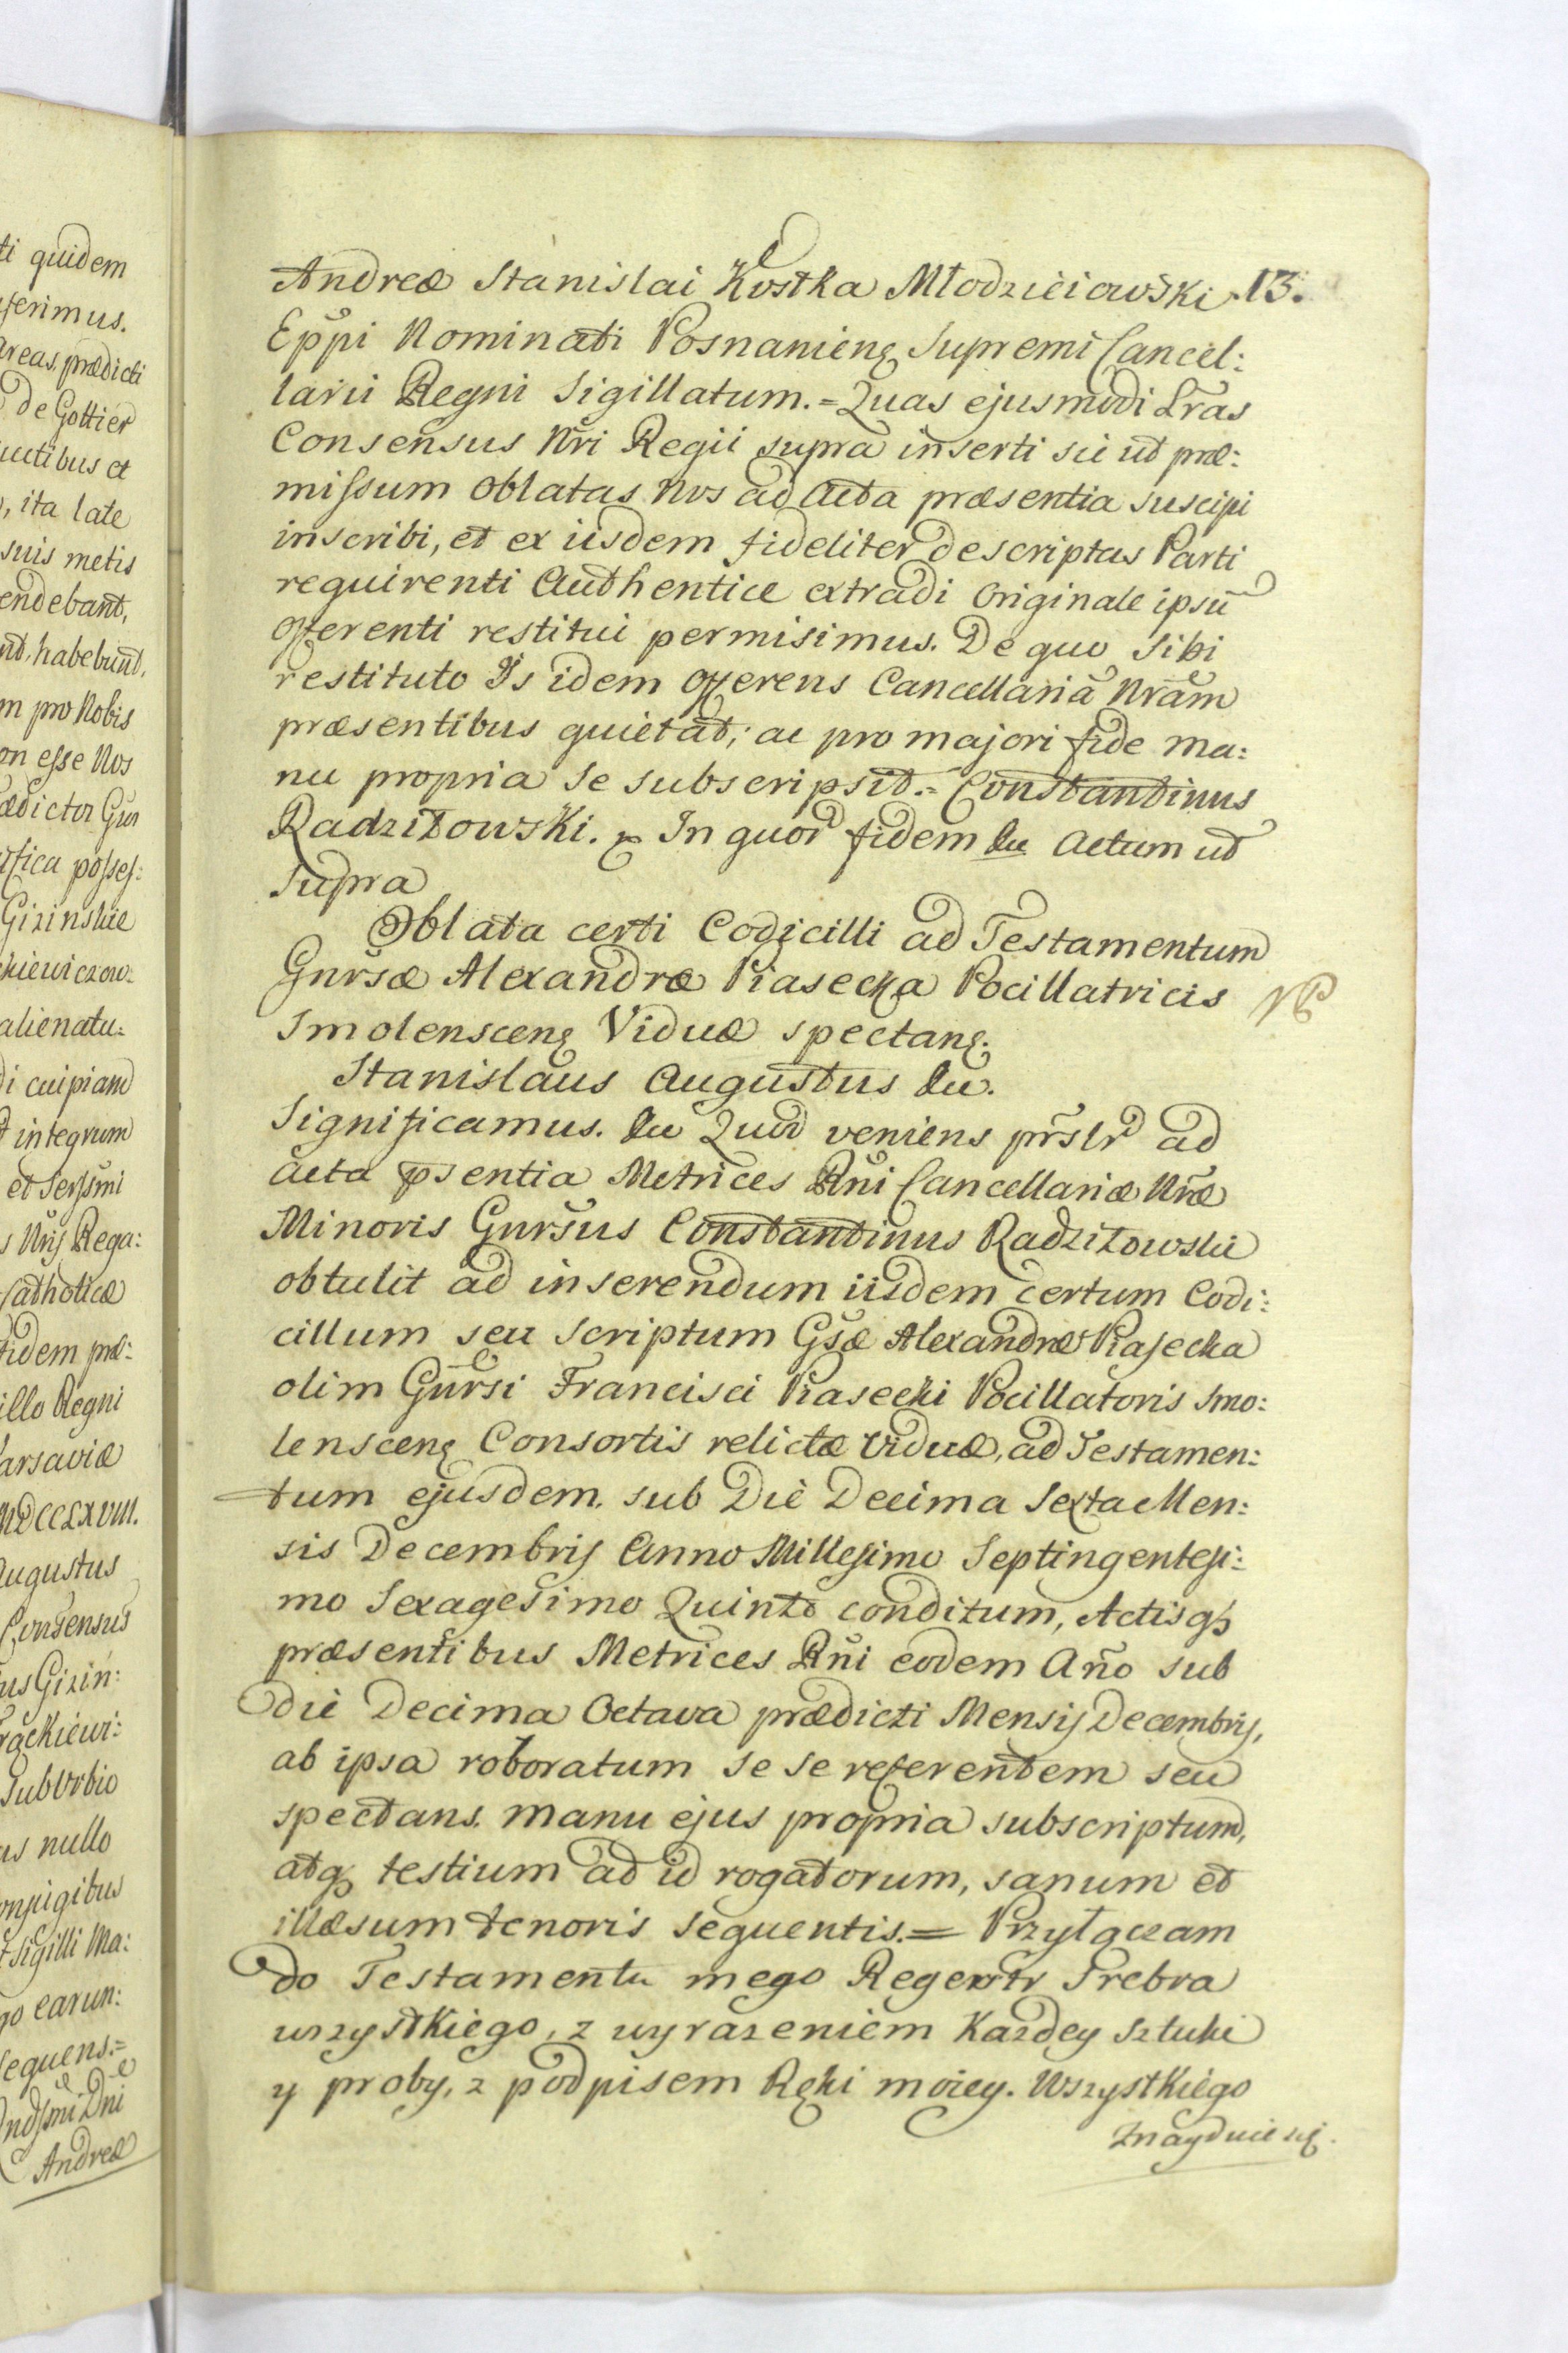 ti quidem
serimus.
areas, prædicti
de Gottier
uctibus et
, ita late
suis metis
endebant,
nt, habebunt,
m pro Nobis
on esse Nos
ædictor Gnr
ifica posses:
Gizinskie
kiewiczow:
alienatu:
di cuipiam
t integrum
et Serssmi
s Nris Rega:
Catholicæ
fidem præ:
illo Regni
Varsaviæ
MDCCLXVIII.
Augustus
Consensus
us Gizin:
rackiewi:
Suburbio
us nullo
onjugibus
t sigilli Ma:
go earun:
sequens.=
Andreæ
Andreæ Stanislai Kostka Młodzieiowski 13.
Eppi Nominati Posnanieng Supremi Cancel:
larii Regni Sigillatum.=Quas ejusmodi Lras
Consensus Nri Regii supra inserti sic ut præ:
missum oblatas Nos ad Acta præsentia suscipi
inscribi, et ex iisdem fideliter descriptas Parti
requirenti Authentice extradi Originale ipsũ
offerenti restitui permisimus. De quo Sibi
restituto Is idem offerens Cancellariã Nram
præsentibus quietat; ac pro majori fide ma:
nu propria se subscripsit.= Constantinus
Radzitowski. In quor fidem &c Actum ut
Supra
Oblata certi Codicilli ad Testamentum
Gnrsæ Alexandræ Piasecka Pocillatricis
Smolensceng Viduæ spectang.
Stanislaus Augustus &c.
Significamus. &c Quod veniens prslr ad
acta psentia Metrices Rni Cancellariæ Nræ
Minoris Gnrsus Constantinus Radzitowski
obtulit ad inserendum iisdem certum Codi:
cillum seu Scriptum Gsæ Alexandræ Piasecka
olim Gnrsi Francisci Piasecki Pocillatoris Smo:
lensceng Consortis relictæ Viduæ, ad Testamen:
tum ejusdem. sub Die Decima Sexta Men:
sis Decembris Anno Millesimo Septingentesi:
mo Sexagesimo Quinto conditum, Actisq;
præsentibus Metrices Rni eodem Año sub
die Decima Octava prædicti Mensis Decembris,
ab ipsa roboratum se se referentem seu
spectans. manu ejus propria subscriptum,
atq; testium ad id rogatorum, sanum et
illæsum tenoris sequentis.= Przyłączam
do Testamentu mego Regestr Srebra
wszystkiego, z wyrazeniem Kazdey Sztuki
y proby, z podpisem Ręki moiey. Wszystkiego
Znayduie się.